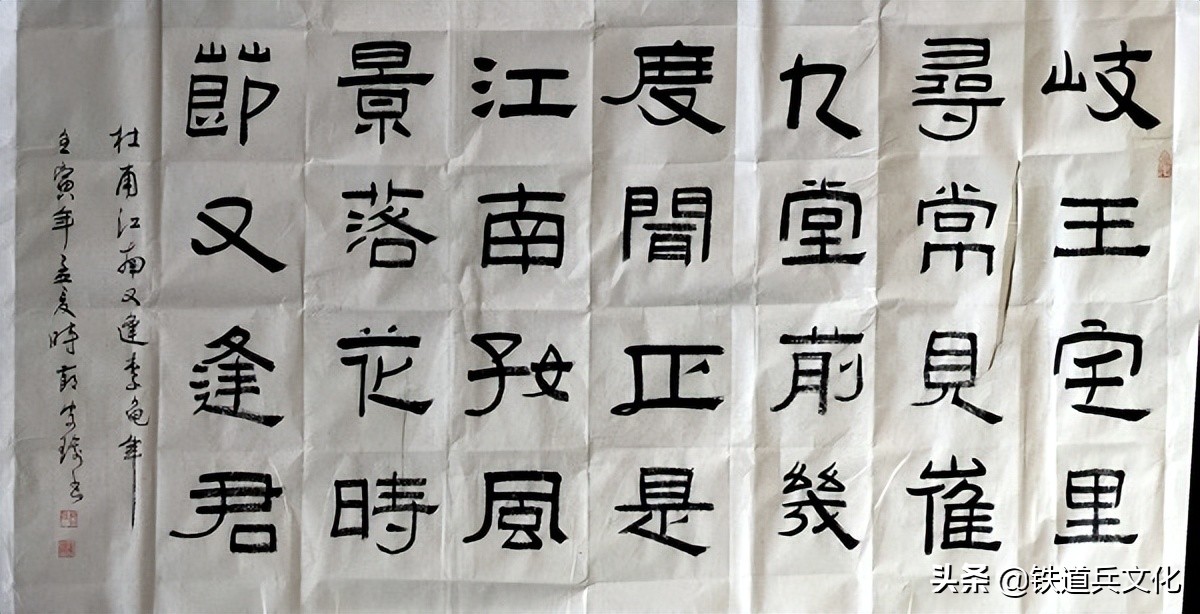 岐王宅里
尋常見崔
九堂前幾
度聞正是
江南好風
景落花時
節又逢君
杜甫江南又逢李龟年
壬寅年孟夏時
头条 @铁道兵文化